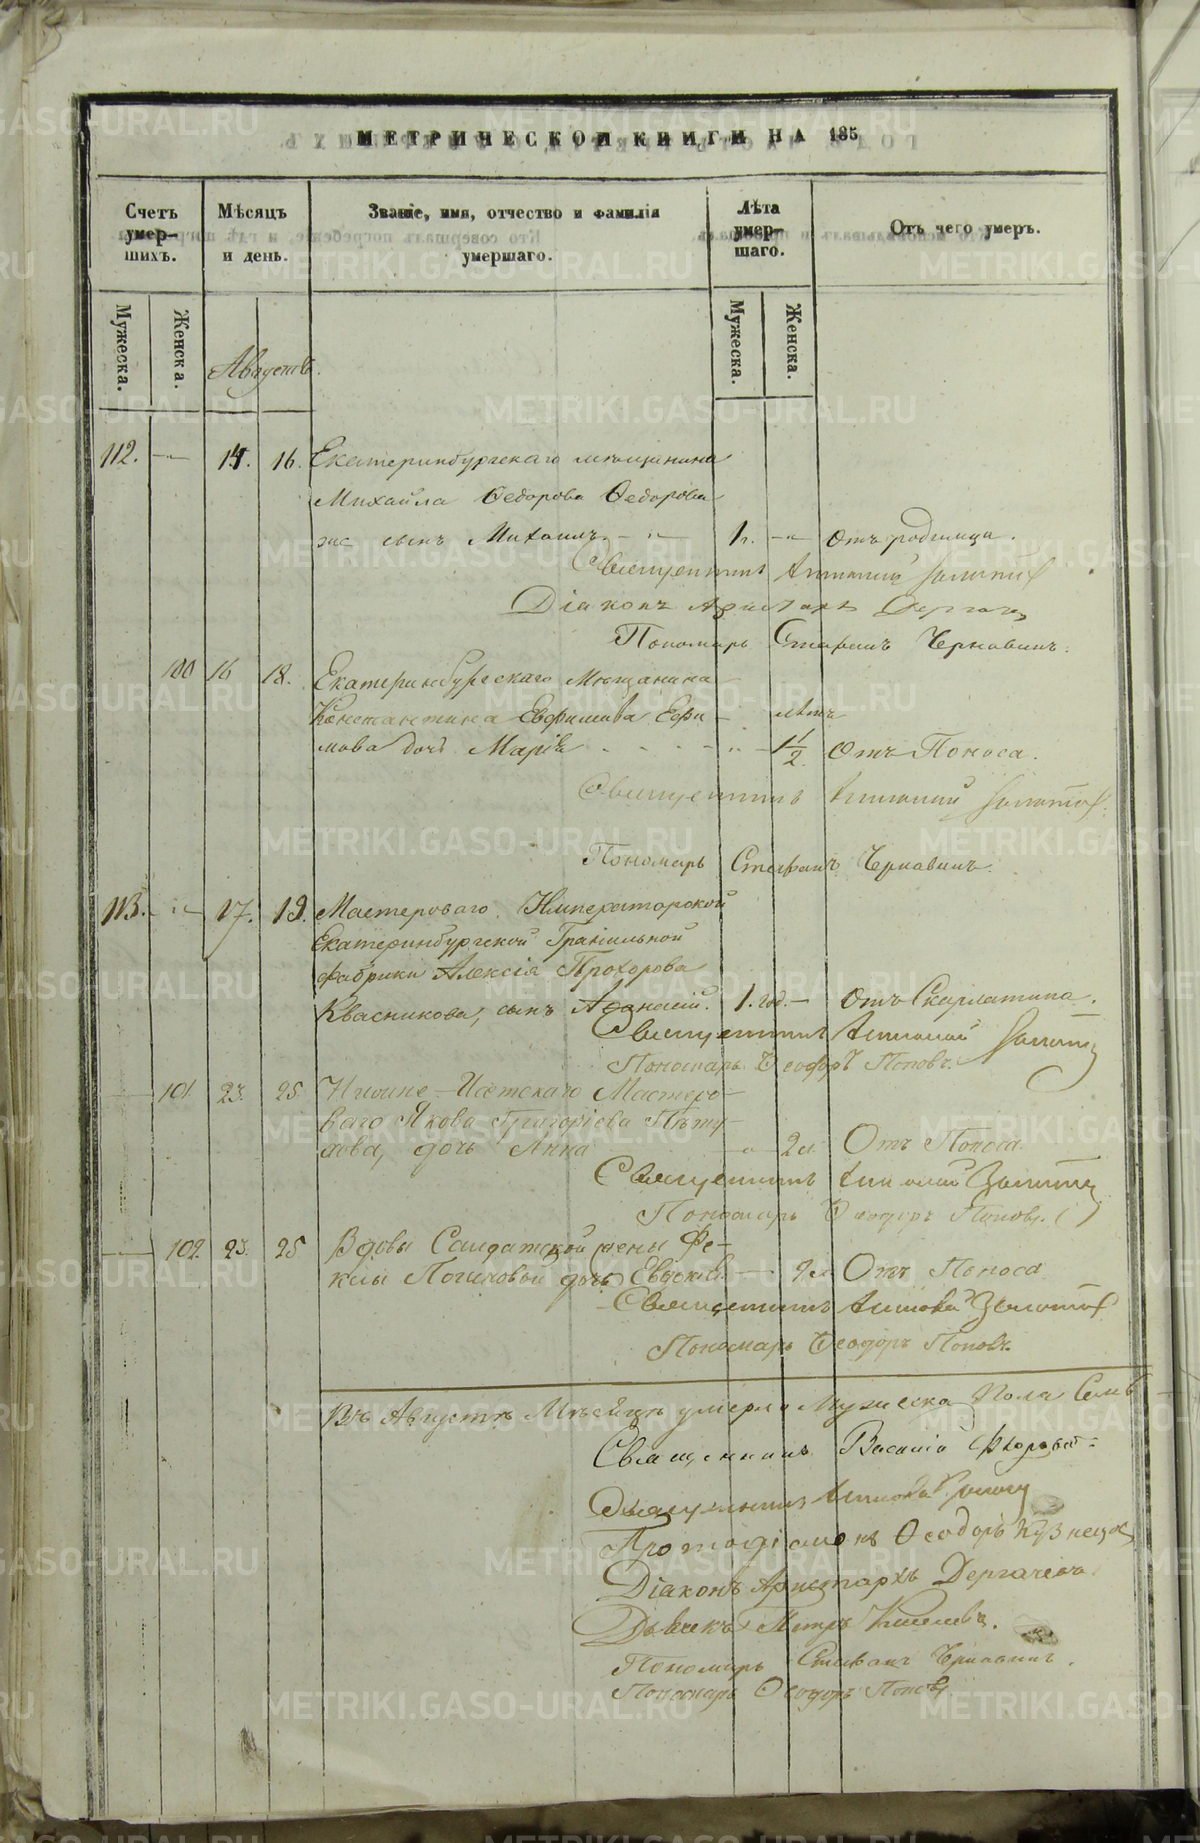 МЕТРИЧЕСКОЙ КНИГИ НА 185
Счетъ умер-шихъ.
Мѣсяцъ и день.
Званіе, имя, отчество и фамилія умершаго.
Лѣта умер-шаго.
Отъ чего умеръ.
Мужеска.
Женска.
Мужеска.
Женска.
Августъ.
112. 14. 16. Екатеринбургскаго мѣщанина
Михайла Ѳедорова Ѳедорова
же сынъ Михаилъ 1 г. Отъ родимца.
Священникъ Антоній
Діаконъ Аристархъ Дергачев
Пономарь Стефанъ Чернавинъ.
100 16 18. Екатеринбургскаго Мѣщанина
Константина Евфимова Ефи-
мова дочь Марія лѣтъ 1 1/2 Отъ Поноса.
Священникъ Антоній
Пономарь Стефанъ Чернавинъ.
113. 17. 19. Мастероваго Императорской
Екатеринбургской Гранильной
фабрики Алексія Прохорова
Квасникова, сынъ Афанасій. 1. год. Отъ Скарлатина.
Священникъ Антоній
Пономарь Ѳеодоръ Поповъ.
101 23. 25. Нижне-Исетскаго Мастеро-
ваго Якова Григоріева Пѣту-
хова, дочь Анна 2 л. Отъ Поноса
Священникъ Антоній
Пономарь Ѳеодоръ Поповъ.
102. 23. 25 Вдовы Солдатской жены Фе-
клы Логиновой дочь Отъ Поноса
Священникъ Антоній
Пономарь Ѳеодоръ Поповъ.
Въ Августѣ Мѣсяцѣ умерло Мужеска Пола
Священникъ Василій
Священникъ Антоній
Протодіаконъ Ѳеодоръ Кузнецов
Діаконъ Аристархъ Дергачевъ
Дьячекъ Петръ Киселевъ.
Пономарь Стефанъ Чернавинъ.
Пономарь Ѳеодоръ Поповъ
METRIKI.GASO-URAL.RU